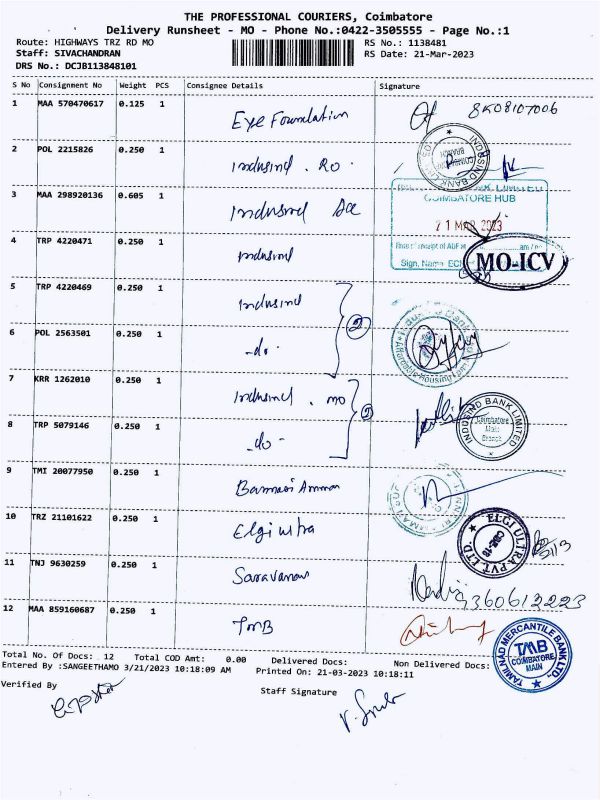 THE PROFESSIONAL COURIERS, Coimbatore
Delivery Runsheet - MO - Phone No.:0422-3505555 - Page No.:1
Route: HIGHWAYS TRZ RD MO RS No.: 1138481
Staff: SIVACHANDRAN RS Date: 21-Mar-2023
DRS No.: DCJB113848101
S No Consignment No Weight PCS Consignee Details Signature
1 MAA 570470617 0.125 1 Eye Foundation
2 POL 2215826 0.250 1 Indusind . RO.
INDUSIND BANK LIMITED
3 MAA 298920136 0.605 1 Indusind
COIMBATORE HUB
21 MAR 2023
4 TRP 4220471 0.250 1 Indusind
Sign. Name
MO-ICV
5 TRP 4220469 0.250 1 Indusind
2
6 POL 2563501 0.250 1 -do-
7 KRR 1262010 0.250 1 Indusind . MO
2
INDUSIND BANK LIMITED
Coimbatore
Main
Branch
8 TRP 5079146 0.250 1 -do-
9 TMI 20077950 0.250 1 Bannari Amman
10 TRZ 21101622 0.250 1 Elgi ultra
ELGI ULTRA PVT. LTD.
11 TNJ 9630259 0.250 1
12 MAA 859160687 0.250 1 TMB
TAMILNAD MERCANTILE BANK LTD.,
TMB
COIMBATORE
MAIN
Total No. Of Docs: 12 Total COD Amt: 0.00 Delivered Docs: Non Delivered Docs:
Entered By :SANGEETHAMO 3/21/2023 10:18:09 AM Printed On: 21-03-2023 10:18:11
Verified By Staff Signature